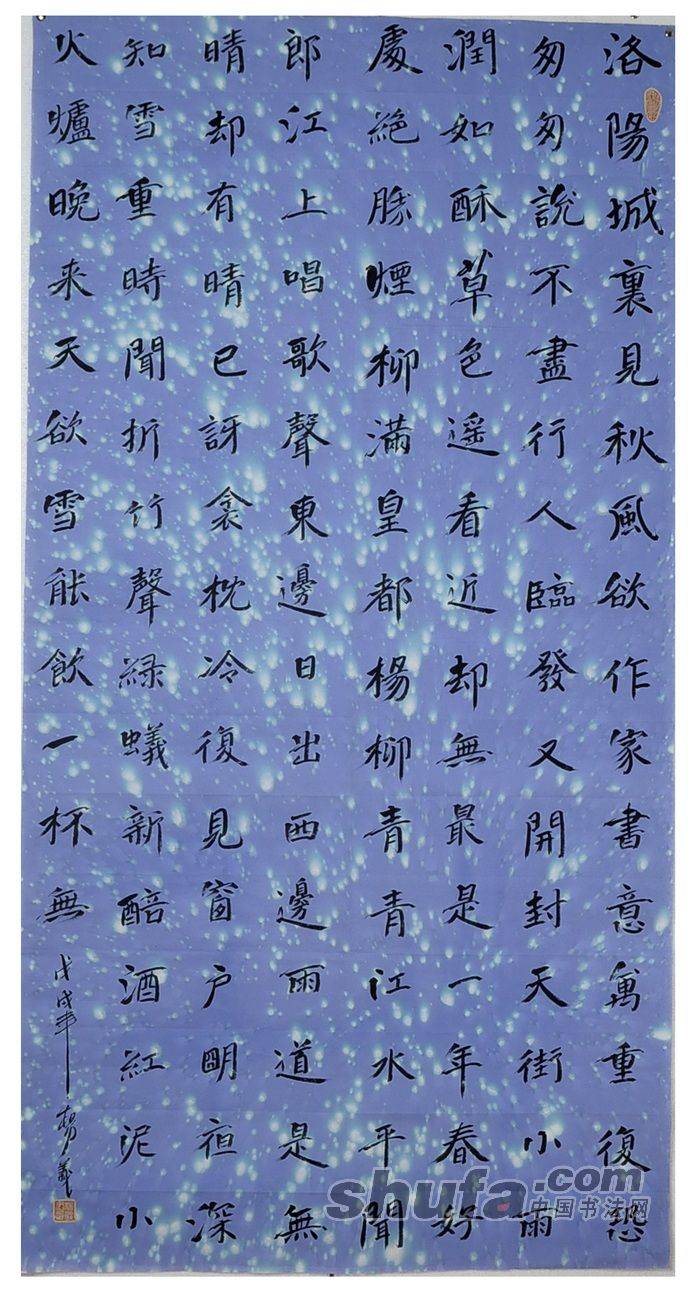 洛陽城裏見秋風欲作家書意萬重復恐
匆匆說不盡行人臨發又開封天街小雨
潤如酥草色遥看近却無最是一年春好
處絕勝煙柳滿皇都楊柳青青江水平聞
郎江上唱歌聲東邊日出西邊雨道是無
晴却有晴已訝衾枕冷復見窗户明夜深
知雪重時聞折竹聲緑蟻新醅酒紅泥小
火爐晚来天欲雪能飲一杯無
戊戌年 楊義
shufa.com
中国书法网